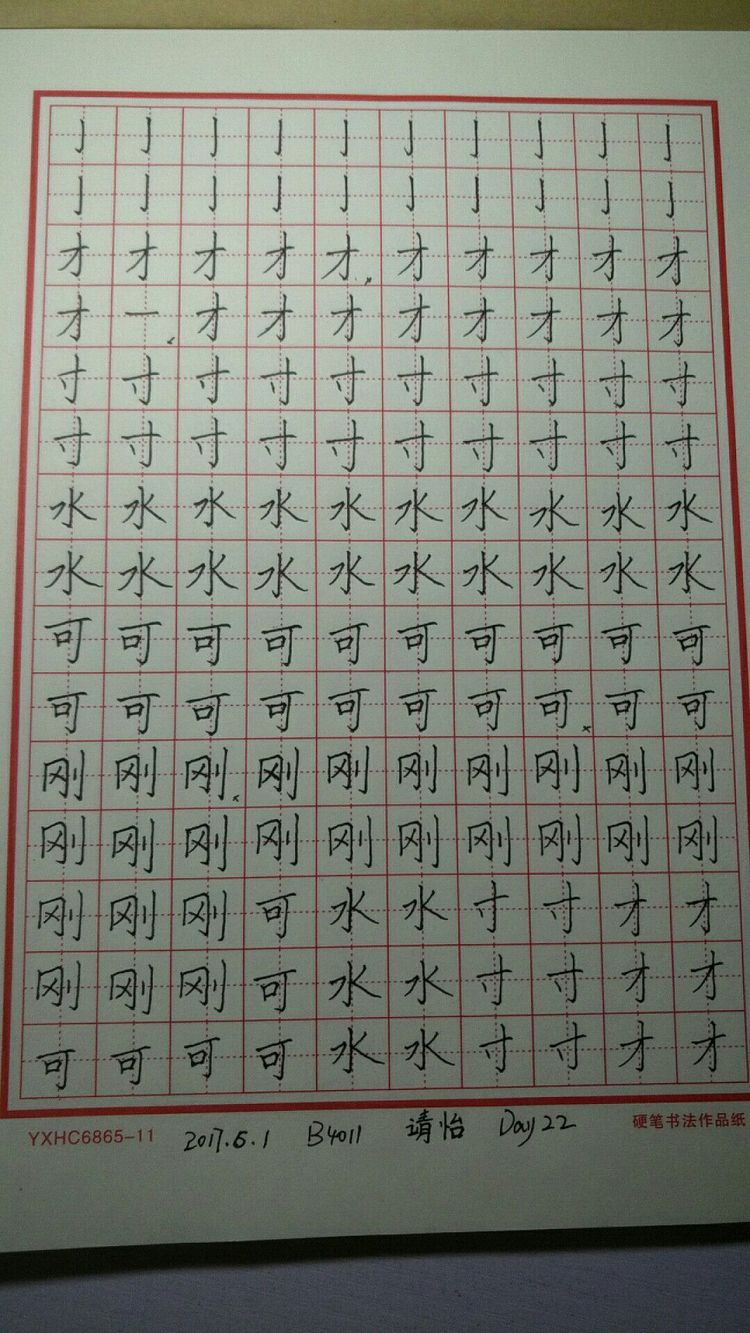 亅 亅 亅 亅 亅 亅 亅 亅 亅 亅
亅 亅 亅 亅 亅 亅 亅 亅 亅 亅
才 才 才 才 才 才 才 才 才 才
才 一 才 才 才 才 才 才 才 才
寸 寸 寸 寸 寸 寸 寸 寸 寸 寸
寸 寸 寸 寸 寸 寸 寸 寸 寸 寸
水 水 水 水 水 水 水 水 水 水
水 水 水 水 水 水 水 水 水 水
可 可 可 可 可 可 可 可 可 可
可 可 可 可 可 可 可 可 可 可
刚 刚 刚 刚 刚 刚 刚 刚 刚 刚
刚 刚 刚 刚 刚 刚 刚 刚 刚 刚
刚 刚 刚 可 水 水 寸 寸 才 才
刚 刚 刚 可 水 水 寸 寸 才 才
可 可 可 可 水 水 寸 寸 才 才
YXHC6865-11 2017.5.1 B4011 请怡 Day 22 硬笔书法作品纸